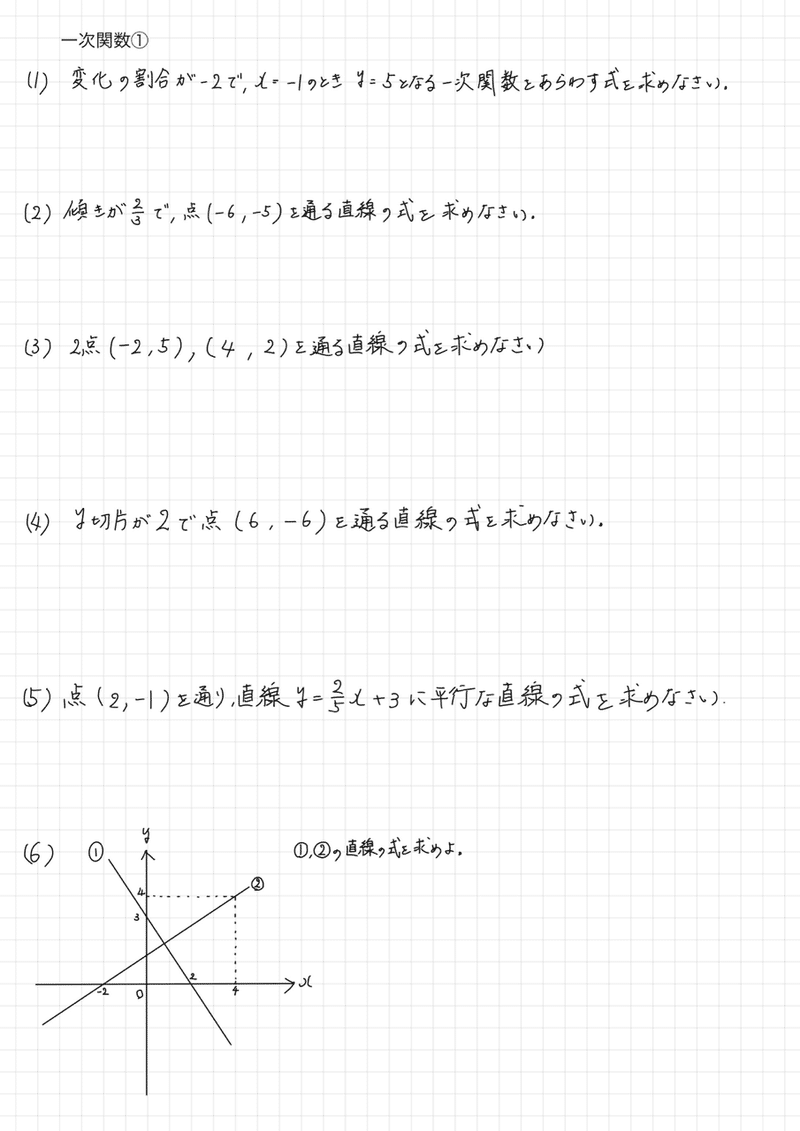 一次関数①
(1) 変化の割合が-2で, x=-1のとき y=5となる一次関数をあらわす式を求めなさい.
(2) 傾きが2/3で, 点(-6,-5)を通る直線の式を求めなさい.
(3) 2点(-2,5),(4,2)を通る直線の式を求めなさい
(4) y切片が2で点(6,-6)を通る直線の式を求めなさい.
(5) 点(2,-1)を通り,直線y=2/5x+3に平行な直線の式を求めなさい.
(6) ① y ①,②の直線の式を求めよ.
②
4
3
-2 0 2 4 x